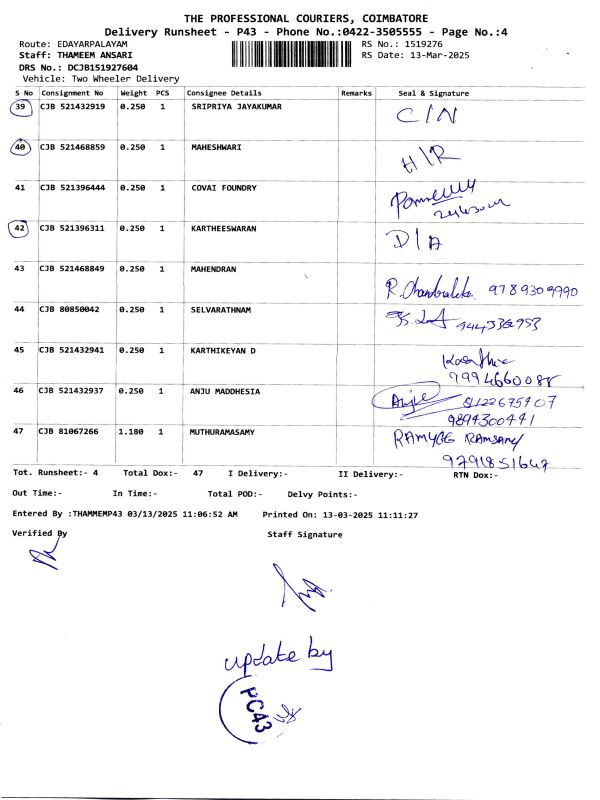 THE PROFESSIONAL COURIERS, COIMBATORE
Delivery Runsheet - P43 - Phone No.:0422-3505555 - Page No.:4
Route: EDAYARPALAYAM RS No.: 1519276
Staff: THAMEEM ANSARI RS Date: 13-Mar-2025
DRS No.: DCJB151927604
Vehicle: Two Wheeler Delivery
S No Consignment No Weight PCS Consignee Details Remarks Seal & Signature
39 CJB 521432919 0.250 1 SRIPRIYA JAYAKUMAR C/N
40 CJB 521468859 0.250 1 MAHESHWARI H/R
41 CJB 521396444 0.250 1 COVAI FOUNDRY
42 CJB 521396311 0.250 1 KARTHEESWARAN D/A
43 CJB 521468849 0.250 1 MAHENDRAN
R. Chandraleka. 9789309990
44 CJB 80850042 0.250 1 SELVARATHNAM
45 CJB 521432941 0.250 1 KARTHIKEYAN D
9994660088
46 CJB 521432937 0.250 1 ANJU MADDHESIA Anju 8122675907
9894300441
47 CJB 81067266 1.180 1 MUTHURAMASAMY
9791851647
Tot. Runsheet:- 4 Total Dox:- 47 I Delivery:- II Delivery:- RTN Dox:-
Out Time:- In Time:- Total POD:- Delvy Points:-
Entered By :THAMMEMP43 03/13/2025 11:06:52 AM Printed On: 13-03-2025 11:11:27
Verified By Staff Signature
update by
PC43